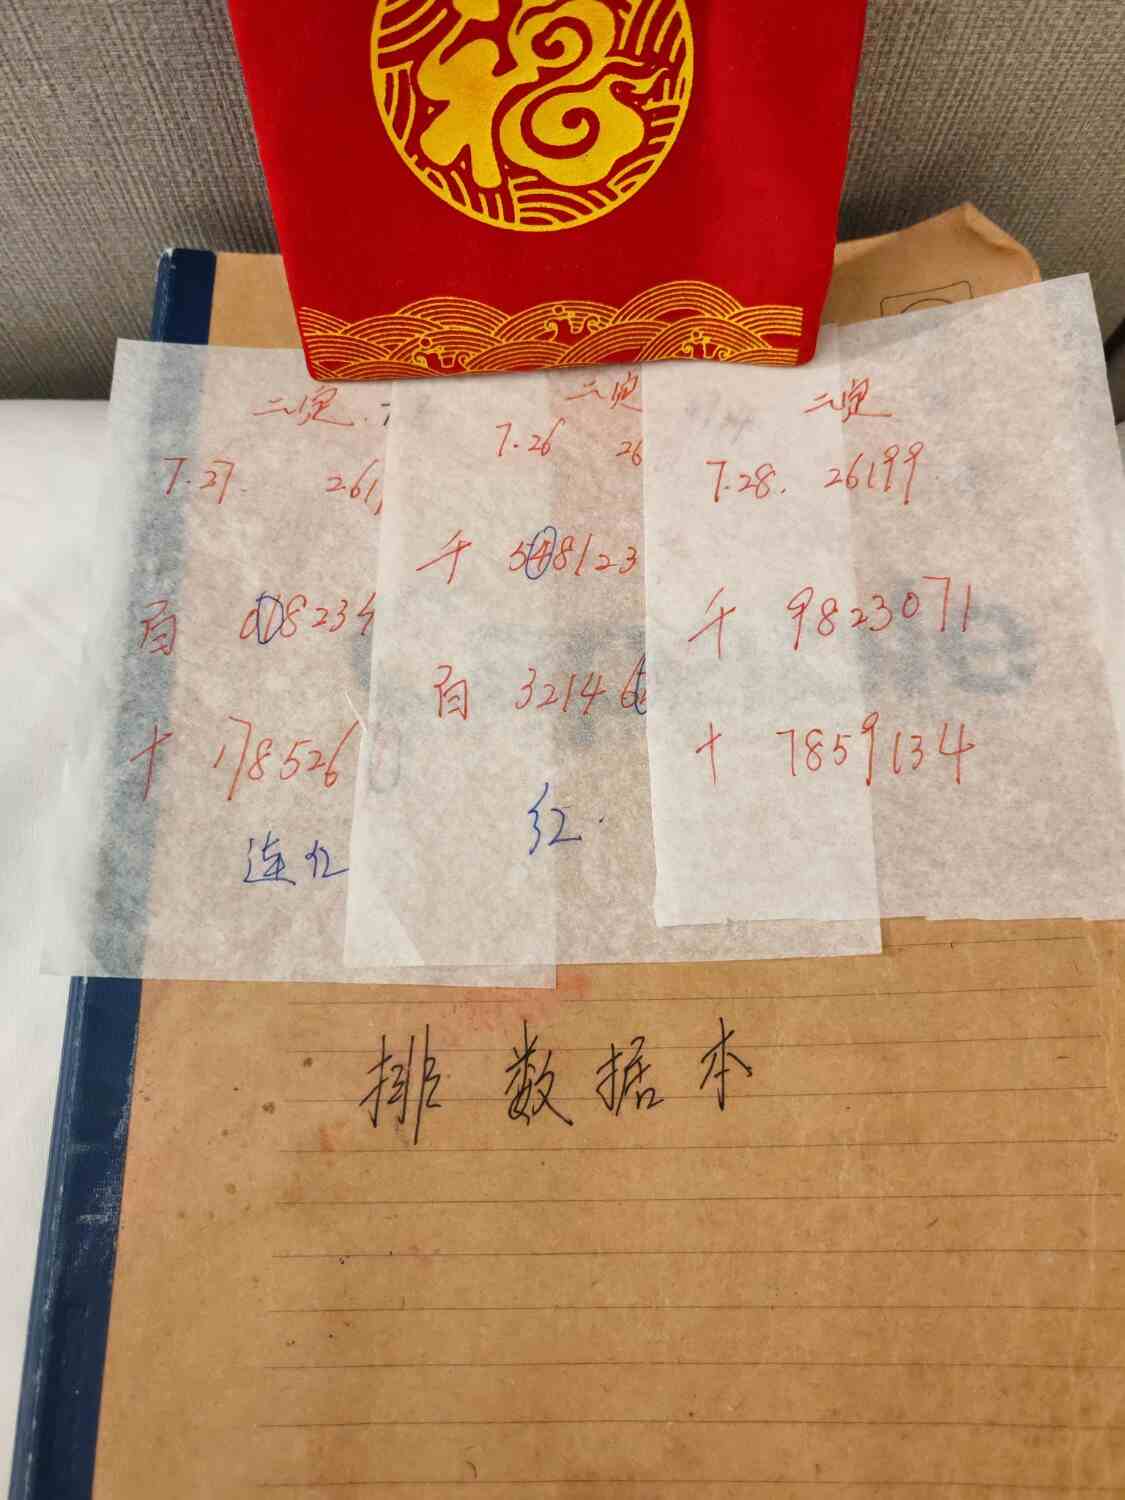 福
二定
7.27. 261
百 018234
十 178526
连红
二定
7.26 26
千 548123
百 32146
红.
二定
7.28. 26199
千 9823071
十 7859134
排数据本